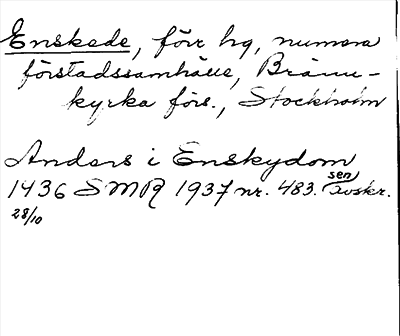 Enskede, förr hg, numera
förstadssamhälle, Bränn-
kyrka förs., Stockholm
Anders i Enskydom
1436 SMR 1937 nr. 483. sen avskr.
28/10